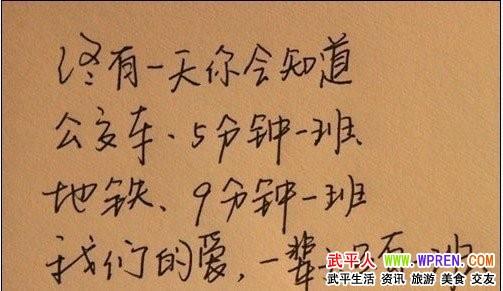 终有一天你会知道
公交车、5分钟一班
地铁、9分钟一班
我们的爱,一辈子只有一班
武平人 WWW.WPREN.COM
武平生活 资讯 旅游 美食 交友